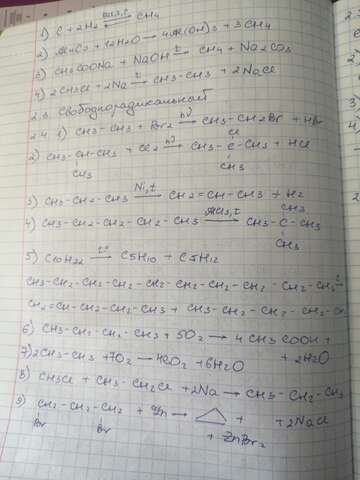 1) C + 2H2 ⇄ CH4
2) Al4C3 + 12H2O → 4Al(OH)3 + 3CH4
3) CH3COONa + NaOH → CH4 + Na2CO3
4) 2CH3Cl + 2Na → CH3-CH3 + 2NaCl
2.3. Свободнорадикальной
2.4. 1) CH3-CH3 + Br2 hν→ CH3-CH2Br + HBr
Cl
2) CH3-CH-CH3 + Cl2 hν→ CH3-C-CH3 + HCl
CH3 CH3
3) CH3-CH2-CH3 Ni,t→ CH2=CH-CH3 + H2
CH3
4) CH3-CH2-CH2-CH2-CH3 AlCl3,t→ CH3-C-CH3
CH3
5) C10H22 t°→ C5H10 + C5H12
CH3-CH2-CH2-CH2-CH2-CH2-CH2-CH2-CH2-CH3 t→
CH2=CH-CH2-CH2-CH3 + CH3-CH2-CH2-CH2-
6) CH3-CH2-CH2-CH3 + 5O2 → 4 CH3COOH +
+ 2H2O
7) 2CH3-CH3 + 7O2 → 4CO2 + 6H2O
8) CH3Cl + CH3-CH2Cl + 2Na → CH3-CH2-CH3
+ 2NaCl
9) CH2-CH2-CH2 + Zn → △ +
Br Br + ZnBr2